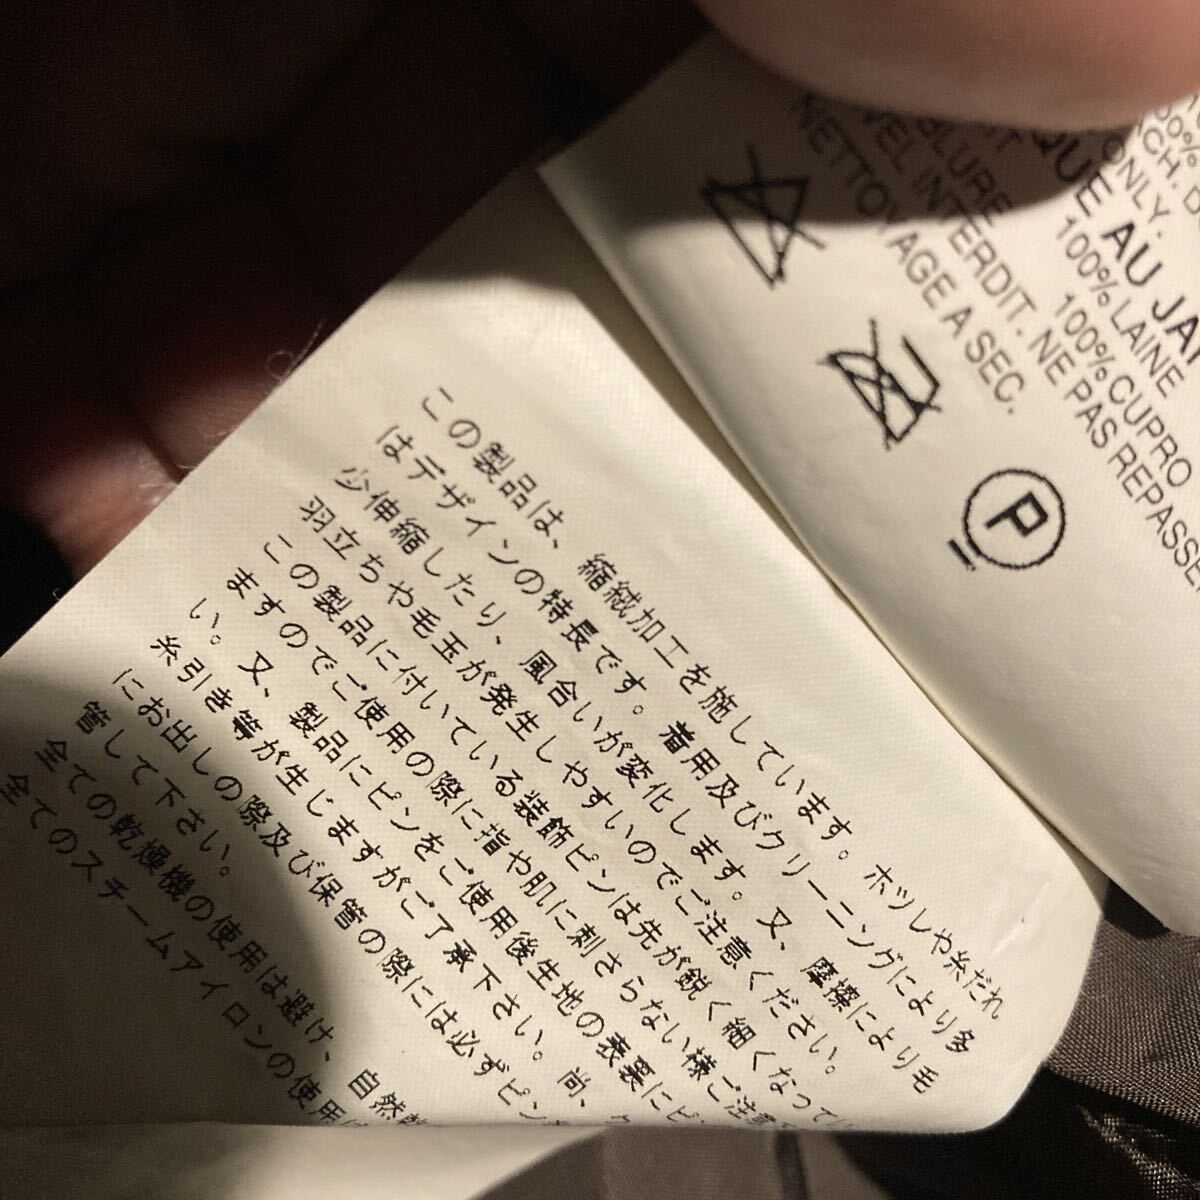 この製品は、縮絨加工を施しています。ホツレや糸だれ
はデザインの特長です。着用及びクリーニングにより多
少伸縮したり、風合いが変化します。又、摩擦により毛
羽立ちや毛玉が発生しやすいのでご注意ください。
この製品に付いている装飾ピンは先が鋭く細くなってい
ますのでご使用の際に指や肌に刺さらない様ご注意
い。又、製品にピンをご使用後生地の表裏にピ
糸引き等が生じますがご了承下さい。尚、ク
にお出しの際及び保管の際には必ずピンを
管して下さい。
全ての乾燥機の使用は避け、自然乾
全てのスチームアイロンの使用は
ONLY.
QUE AU JA
100% LAINE
100% CUPRO
INTERDIT. NE PAS REPASSE
NETTOYAGE A SEC.
P